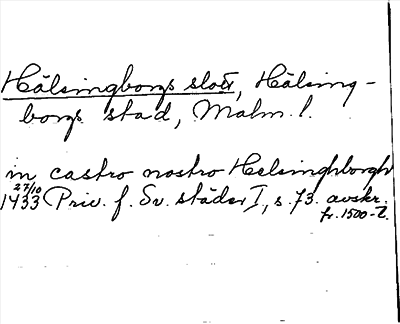 Hälsingborgs slott, Hälsing-
borgs stad, Malm. l.
in castro nostro Helsinghborgh
27/10
1433 Priv. f. Sv. städer I, s. 73. avskr.
fr. 1500-t.